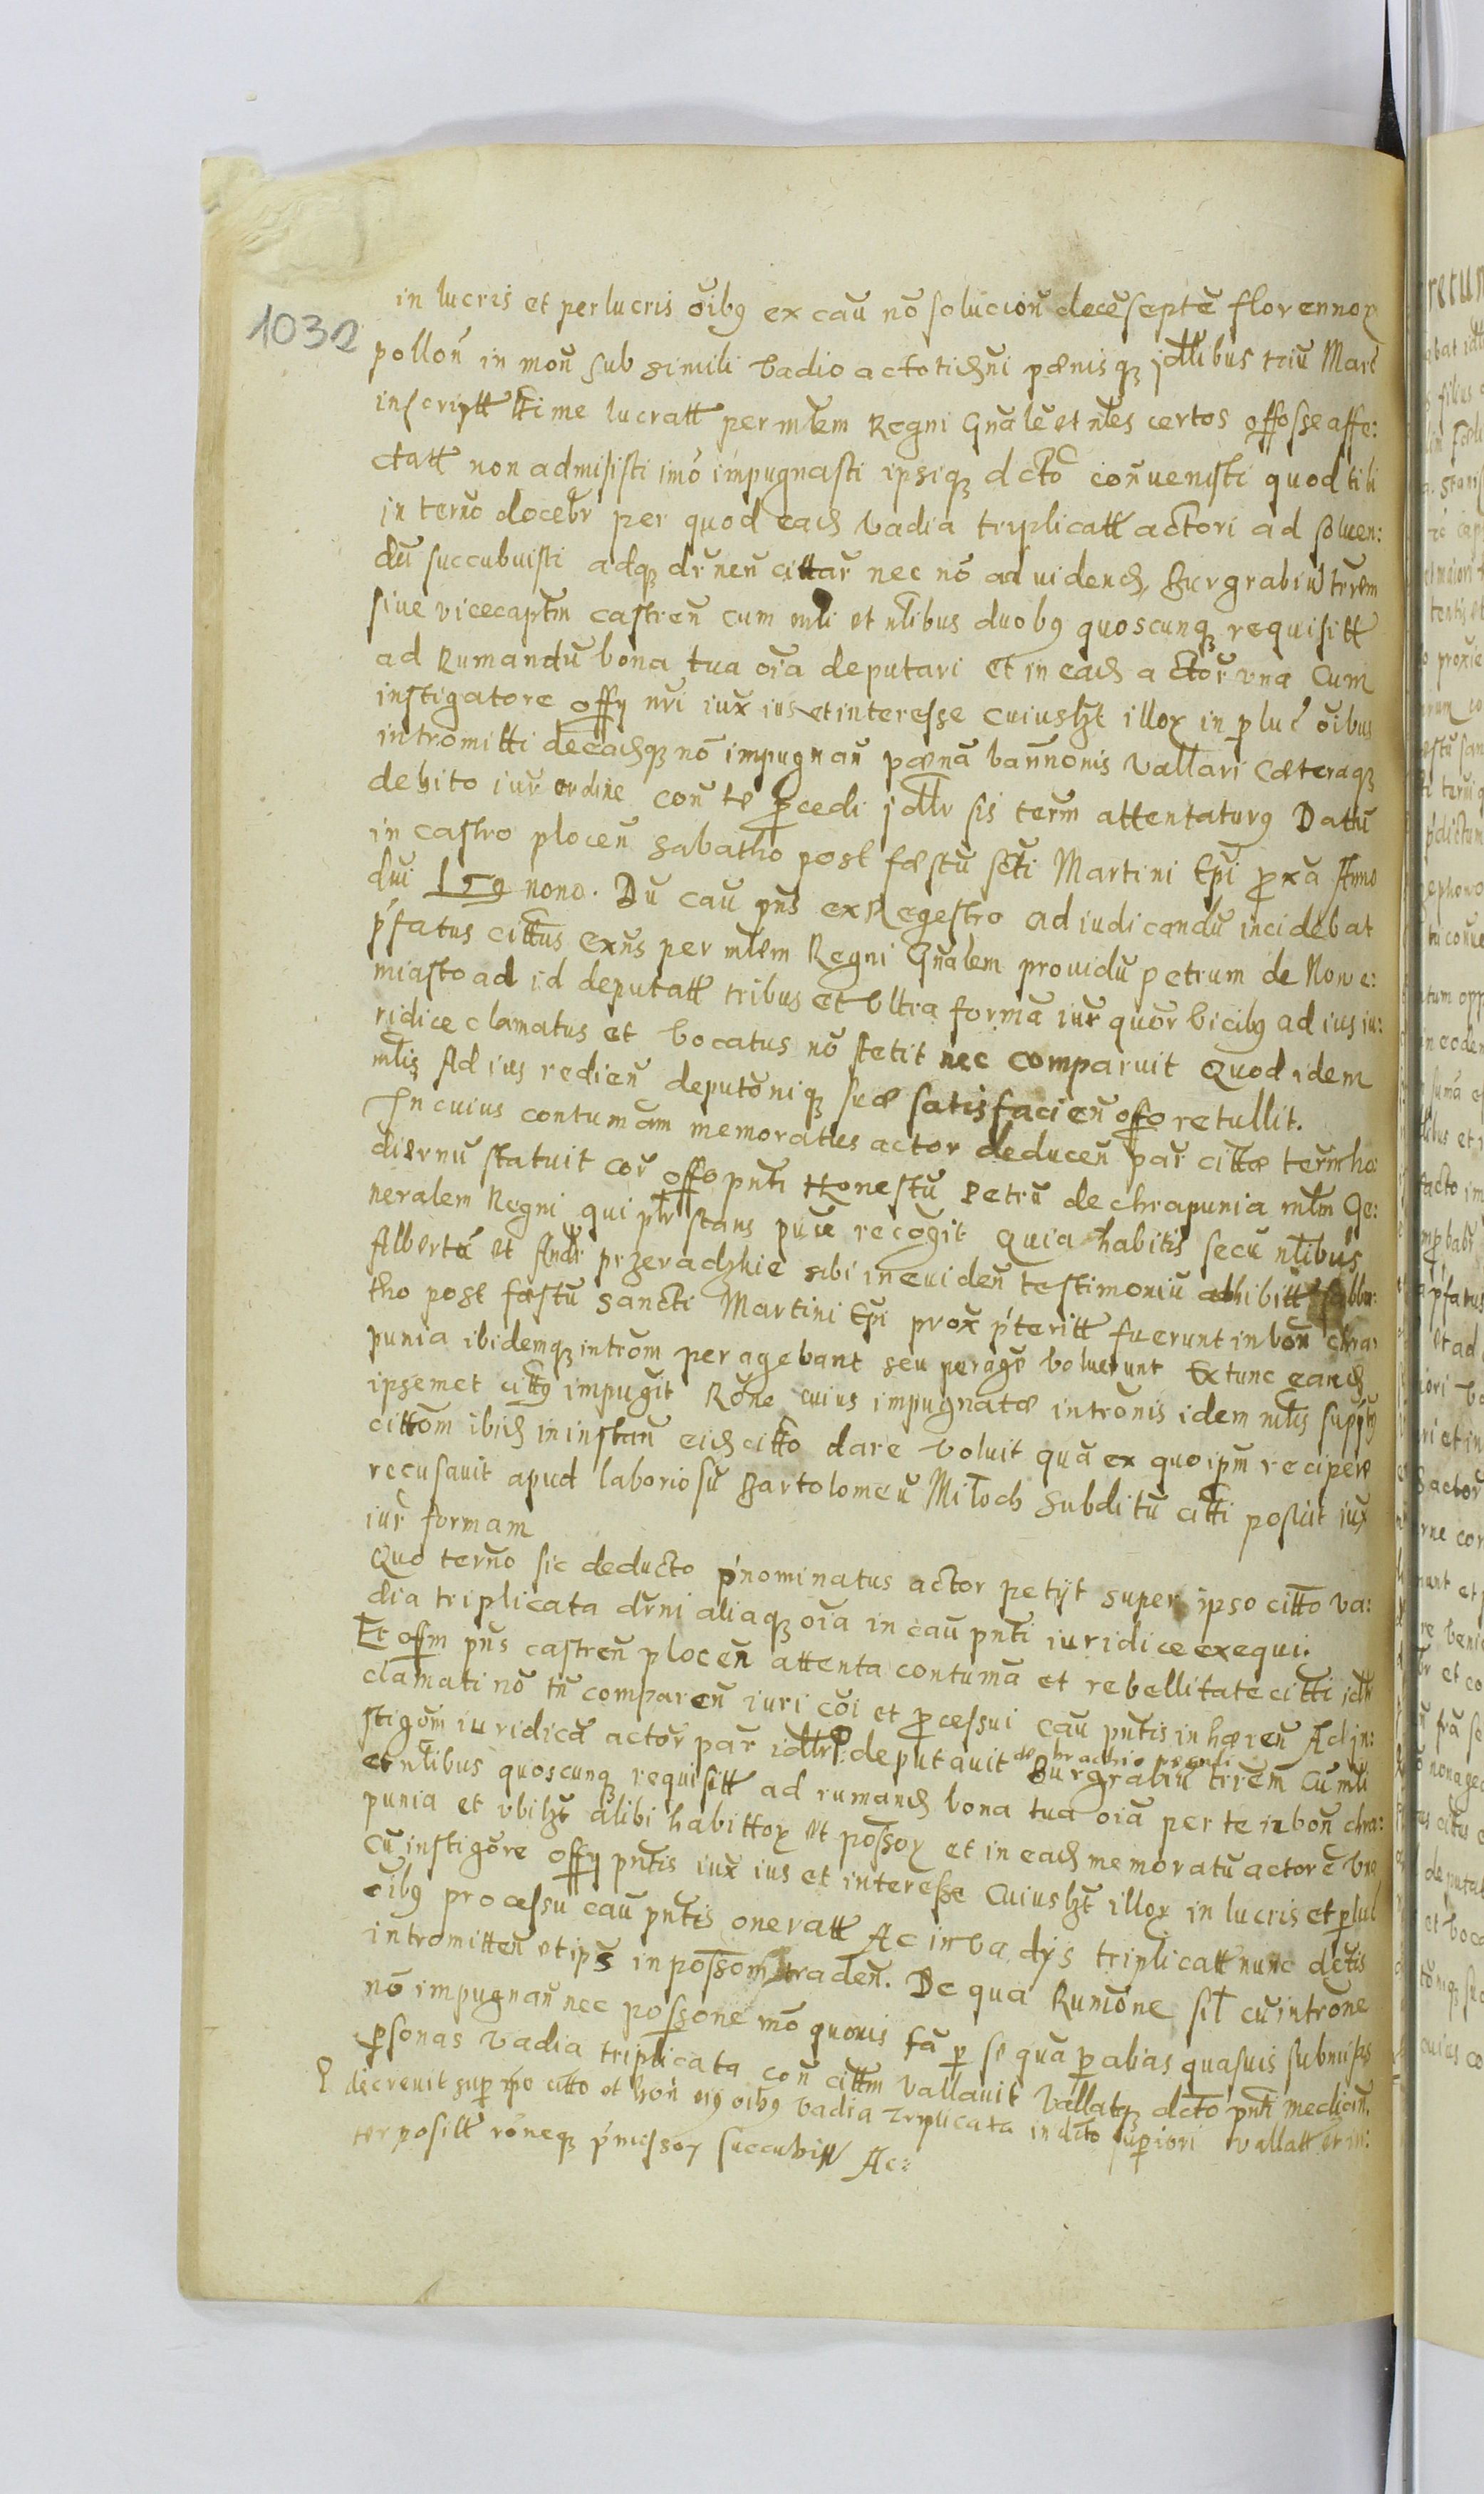 1032
in lucris et perlucris oībꝯ ex caū nō soluciōn decēseptē florennoꝝ
pollon̄ in mon̄ sub simili vadio actotid̄ni pænisqꝫ jdllibus triū Marc̄
inscriptt ttime lucratt per mlem Regni Gnālē et nles certos offosse affe:
ctatt non admisisti imō impugnasti ipsiqꝫ dctō con̄uenisti quod tibi
in tern̄o docebr̄ per quod ead̄ vadia triplicatt actori ad soluen:
dū succubuisti adqꝫ dr̄nen̄ cittar̄ nec nō ad uidend̄ Burgrabiū trrēm
siue vicecaptm̄ castren̄ cum mli et nlibus duobꝯ quoscunqꝫ requisitt
ad Rumandū bona tua oīa deputari et in ead̄ actor̄ vna Cum
instigatore offy nr̄i iux̄ ius et interesse cuiuslzt illoꝝ in pluc̄ oībus
intromitti de ead̄qꝫ nō impugnan̄ pænā ban̄nonis vallari Cæteraqꝫ
debito iur̄ ordine con̄ te pcedi jdllr sis term̄ attentaturꝯ Datū
in castro plocen̄ sabatho post fæstū scti Martini Epi prox̄a Anno
dn̄i 159 nono. Dū cau pn̄s ex Regestro ad iudicandū incidebat
p̄fatus cittus exn̄s per mlēm Regni Gnālem prouidū petrum de Nowe:
miasto ad id deputatt tribus et vltra formā iur̄ quor̄ vicibꝯ ad ius iu:
ridice clamatus et vocatus nō stetit nec comparuit Quod idem
mlis Ad ius redien̄ deputōniqꝫ suæ satisfacien̄ offo retullit.
In cuius contumām memoratus actor deducen̄ par̄ cittæ term̄ ho
diernū statuit cor̄ offo pnti Honestū Petrū de chrapunia mlm̄ Ge:
neralem Regni qui pl̄r stans puūe recogit Quia habitis secū nlibus
Albertū et Andr̄ przeradzkie sibi in euiden̄ testimoniū adhibitt sabba:
tho post fæstū Sancti Martini Epi prox̄ p̄teritt fuerunt in bon̄ chra:
punia ibidemqꝫ introm̄ peragebant seu peragē voluerunt Extunc eand̄
ipsemet cittꝯ impugit Rōne cuius impugnatæ intrōnis idem mlis
cittōm ibid̄ in instan̄ eid̄ citto dare voluit quā ex quo ipm̄ recipere
recusauit apud laboriosū Bartolomeū Miłoch subditū citti posuit iux̄
iur̄ formam
Quo tern̄o sic deducto p̄nominatus actor petyt super ipso citto va:
dia triplicata dr̄ni aliaqꝫ oīa in caū pnti iuridice exequi.
Et offm pn̄s castren̄ plocen̄ attenta contumā et rebellitate citti idm̄
clamati nō tn̄ comparen̄ iuri cōi et pcessui cau pntis inhæren̄ Ad in:
stigōm iuridicā actor̄ par̄ idllr deputauit de brachio regali Burgrabiū trrēm Cu mli
et nlibus quoscunqꝫ requisitt ad rumand̄ bona tua oīa per te in bon̄ chra:
punia et vbilzt alibi habittoꝝ et possoꝝ et in ead̄ memoratū actorē vna
cū instigōre offy pntis iux̄ ius et interesse Cuiuslzt illoꝝ in lucris et plul
oībꝯ processu cau pntis oneratt Ac in vadys triplicatt nunc dctis
intromitten̄ et ips in possom̄ traden̄. De qua Rumōne sil cū intrōne
nō impugnan̄ nec possone mō quouis tā p se quā p alias quasuis submisas
psonas vadia triplicata con̄ cittm̄ vallauit vallatqꝫ dcto pnti median̄.
decreuit sup ipo citto et bon̄ eiꝯ oībꝯ vadia triplicata in dcto supiori vallatt et in:
terpositt rōneqꝫ p̄missoꝝ succubitt Ac: